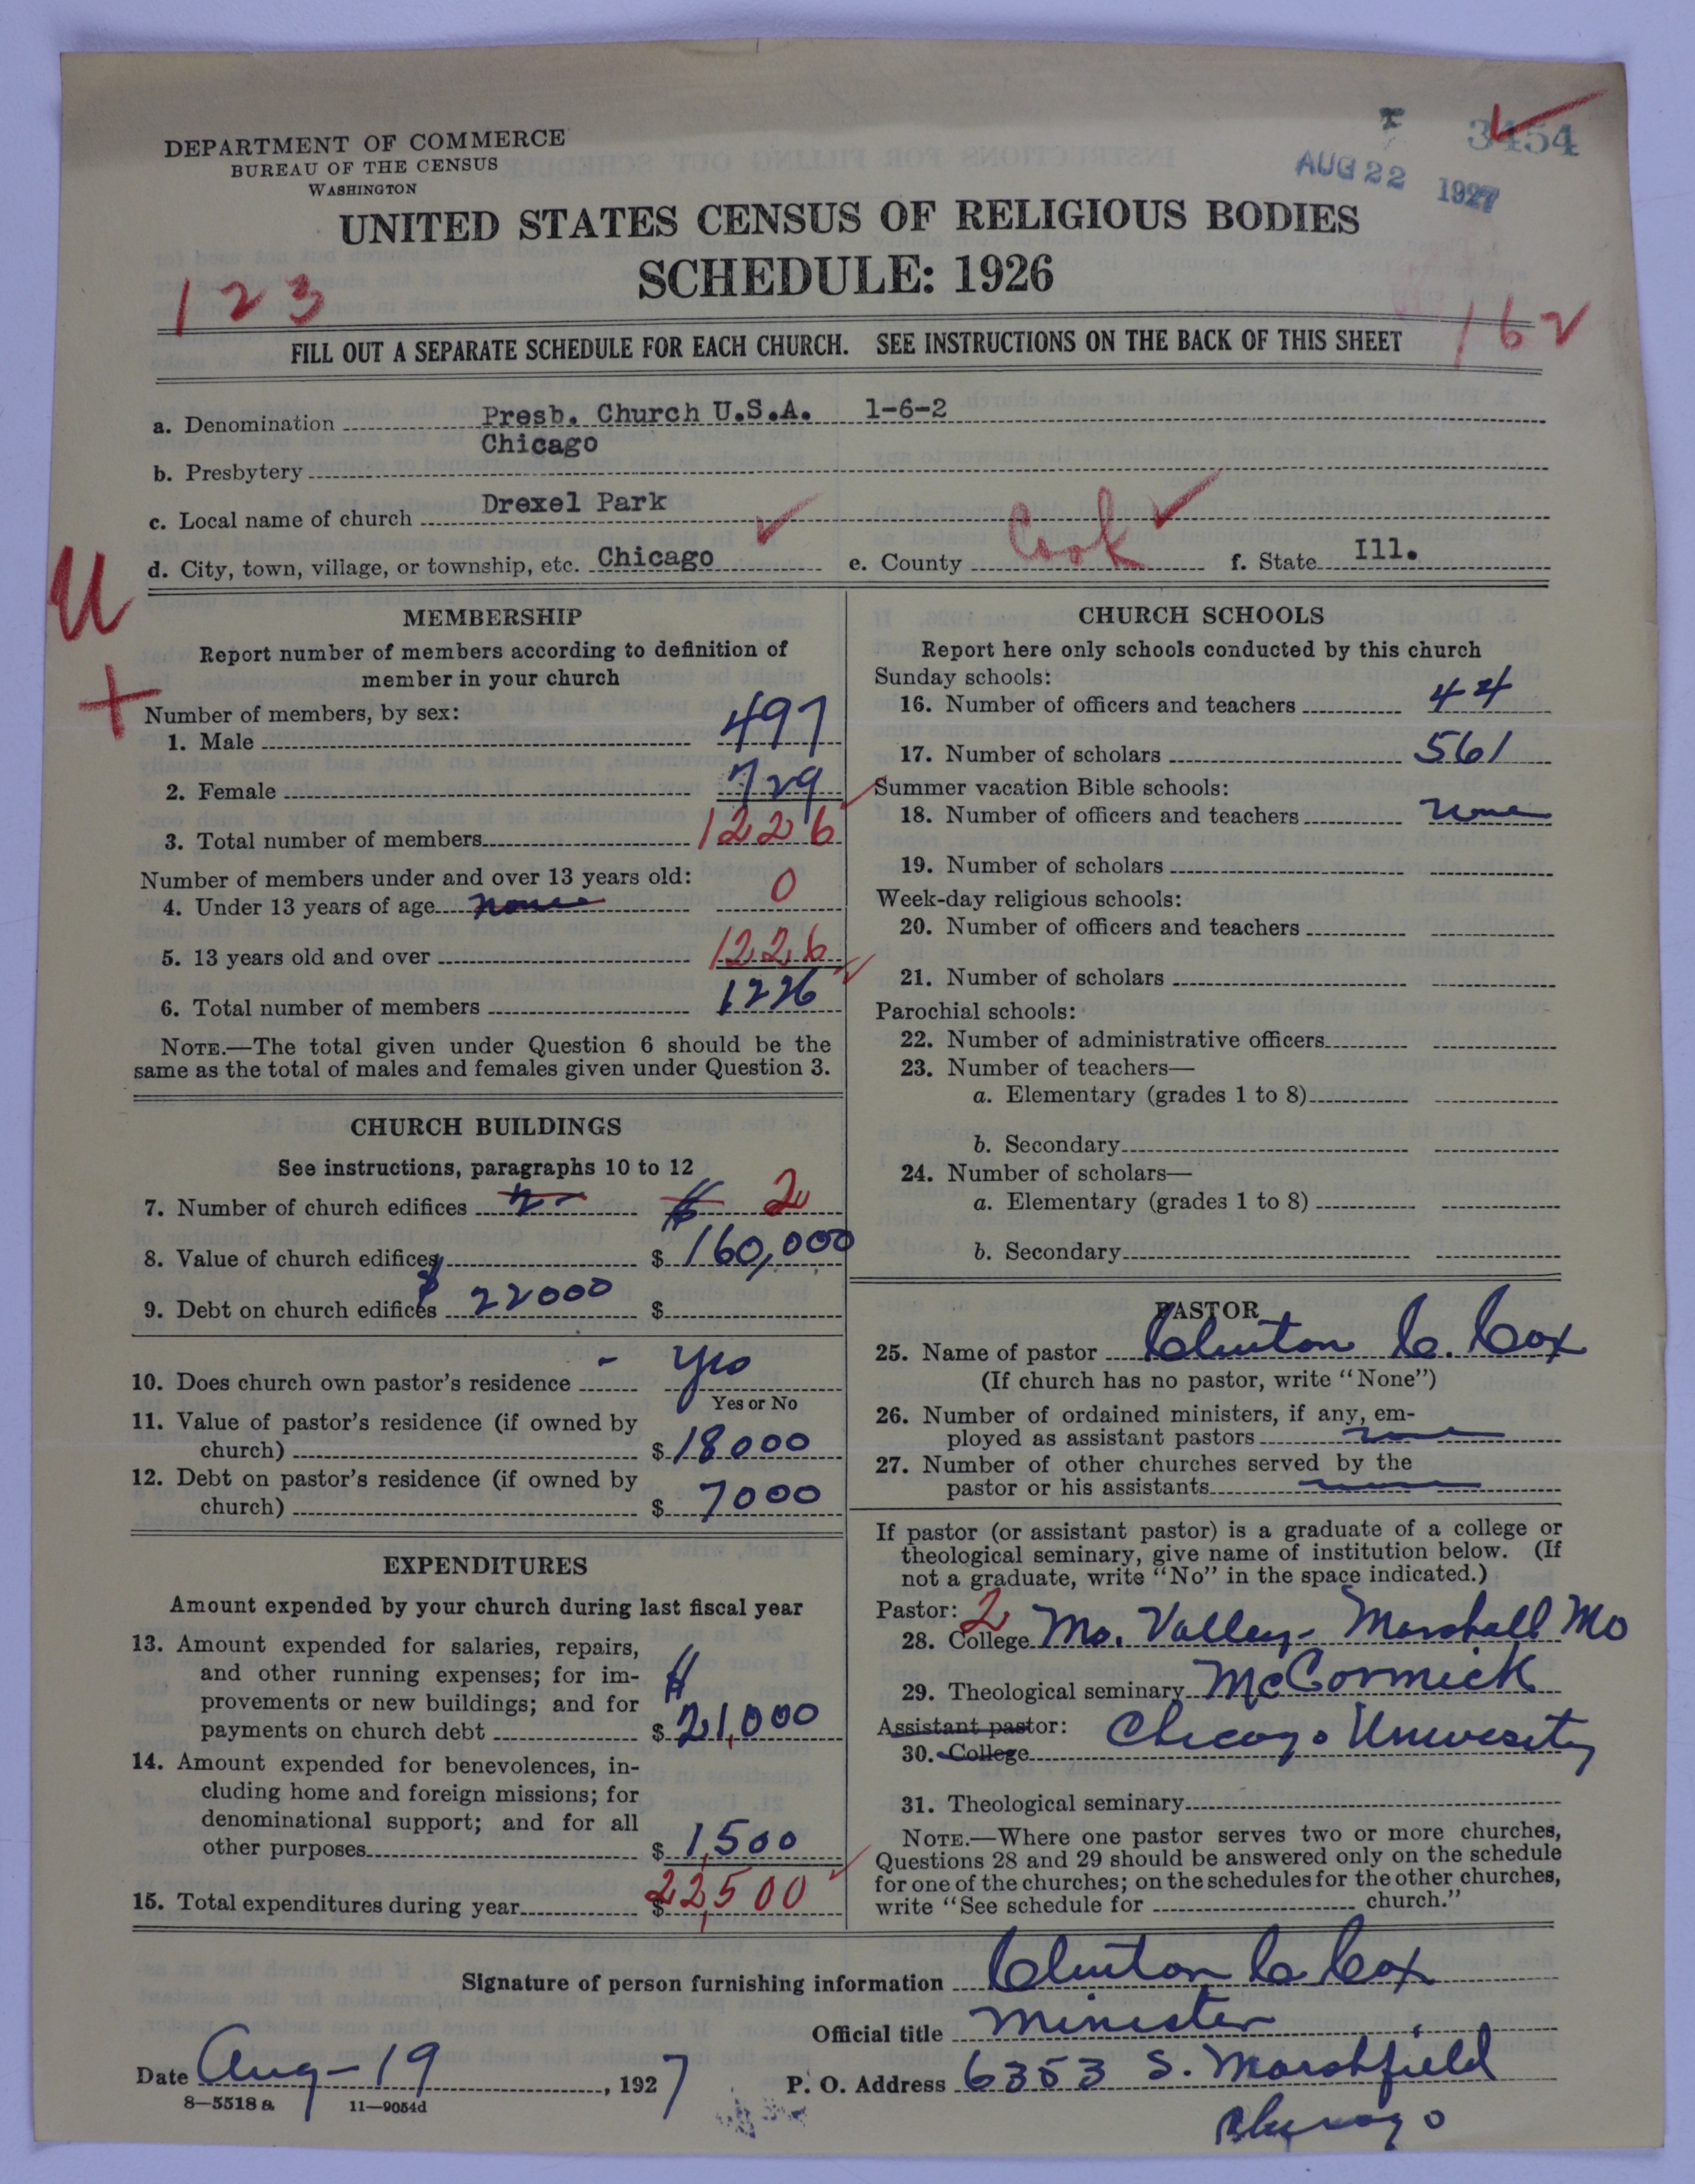 DEPARTMENT OF COMMERCE
BUREAU OF THE CENSUS
WASHINGTON
3454
AUG 22 1927
UNITED STATES CENSUS OF RELIGIOUS BODIES
SCHEDULE: 1926
123
162
FILL OUT A SEPARATE SCHEDULE FOR EACH CHURCH. SEE INSTRUCTIONS ON THE BACK OF THIS SHEET
a. Denomination Presb. Church U.S.A. 1-6-2
Chicago
b. Presbytery
c. Local name of church Drexel Park
d. City, town, village, or township, etc. Chicago e. County Cook f. State Ill.
U
+
MEMBERSHIP
Report number of members according to definition of
member in your church
Number of members, by sex:
1. Male 497
2. Female 729
3. Total number of members 1226
Number of members under and over 13 years old:
4. Under 13 years of age none 0
5. 13 years old and over 1226
6. Total number of members 1226
NOTE.—The total given under Question 6 should be the
same as the total of males and females given under Question 3.
CHURCH BUILDINGS
See instructions, paragraphs 10 to 12
7. Number of church edifices 2 2
8. Value of church edifices $ 160,000
9. Debt on church edifices $ 22000 $
10. Does church own pastor's residence yes
Yes or No
11. Value of pastor's residence (if owned by
church) $ 18000
12. Debt on pastor's residence (if owned by
church) $ 7000
EXPENDITURES
Amount expended by your church during last fiscal year
13. Amount expended for salaries, repairs,
and other running expenses; for im-
provements or new buildings; and for
payments on church debt $ 21,000
14. Amount expended for benevolences, in-
cluding home and foreign missions; for
denominational support; and for all
other purposes $ 1,500
15. Total expenditures during year $ 22,500
CHURCH SCHOOLS
Report here only schools conducted by this church
Sunday schools:
16. Number of officers and teachers 44
17. Number of scholars 561
Summer vacation Bible schools:
18. Number of officers and teachers none
19. Number of scholars
Week-day religious schools:
20. Number of officers and teachers
21. Number of scholars
Parochial schools:
22. Number of administrative officers
23. Number of teachers—
a. Elementary (grades 1 to 8)
b. Secondary
24. Number of scholars—
a. Elementary (grades 1 to 8)
b. Secondary
PASTOR
25. Name of pastor Clinton C. Cox
(If church has no pastor, write "None")
26. Number of ordained ministers, if any, em-
ployed as assistant pastors none
27. Number of other churches served by the
pastor or his assistants none
If pastor (or assistant pastor) is a graduate of a college or
theological seminary, give name of institution below. (If
not a graduate, write "No" in the space indicated.)
Pastor: 2
28. College Mo. Valley - Marshall Mo
29. Theological seminary McCormick
Assistant pastor: Chicago University
30. College
31. Theological seminary
NOTE.—Where one pastor serves two or more churches,
Questions 28 and 29 should be answered only on the schedule
for one of the churches; on the schedules for the other churches,
write "See schedule for church."
Signature of person furnishing information Clinton C Cox
Official title Minister
Date Aug-19, 1927 P. O. Address 6353 S. Marshfield
8—5518 a 11—9054d
Chicago